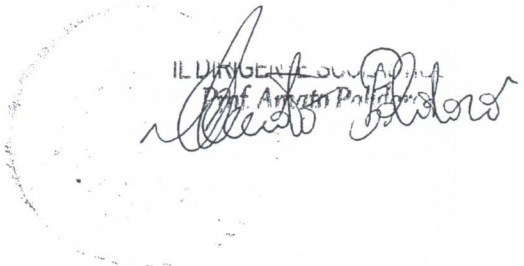 IL DIRIGENTE SCOLASTICO
Prof. Amato Polidoro
Amato Polidoro